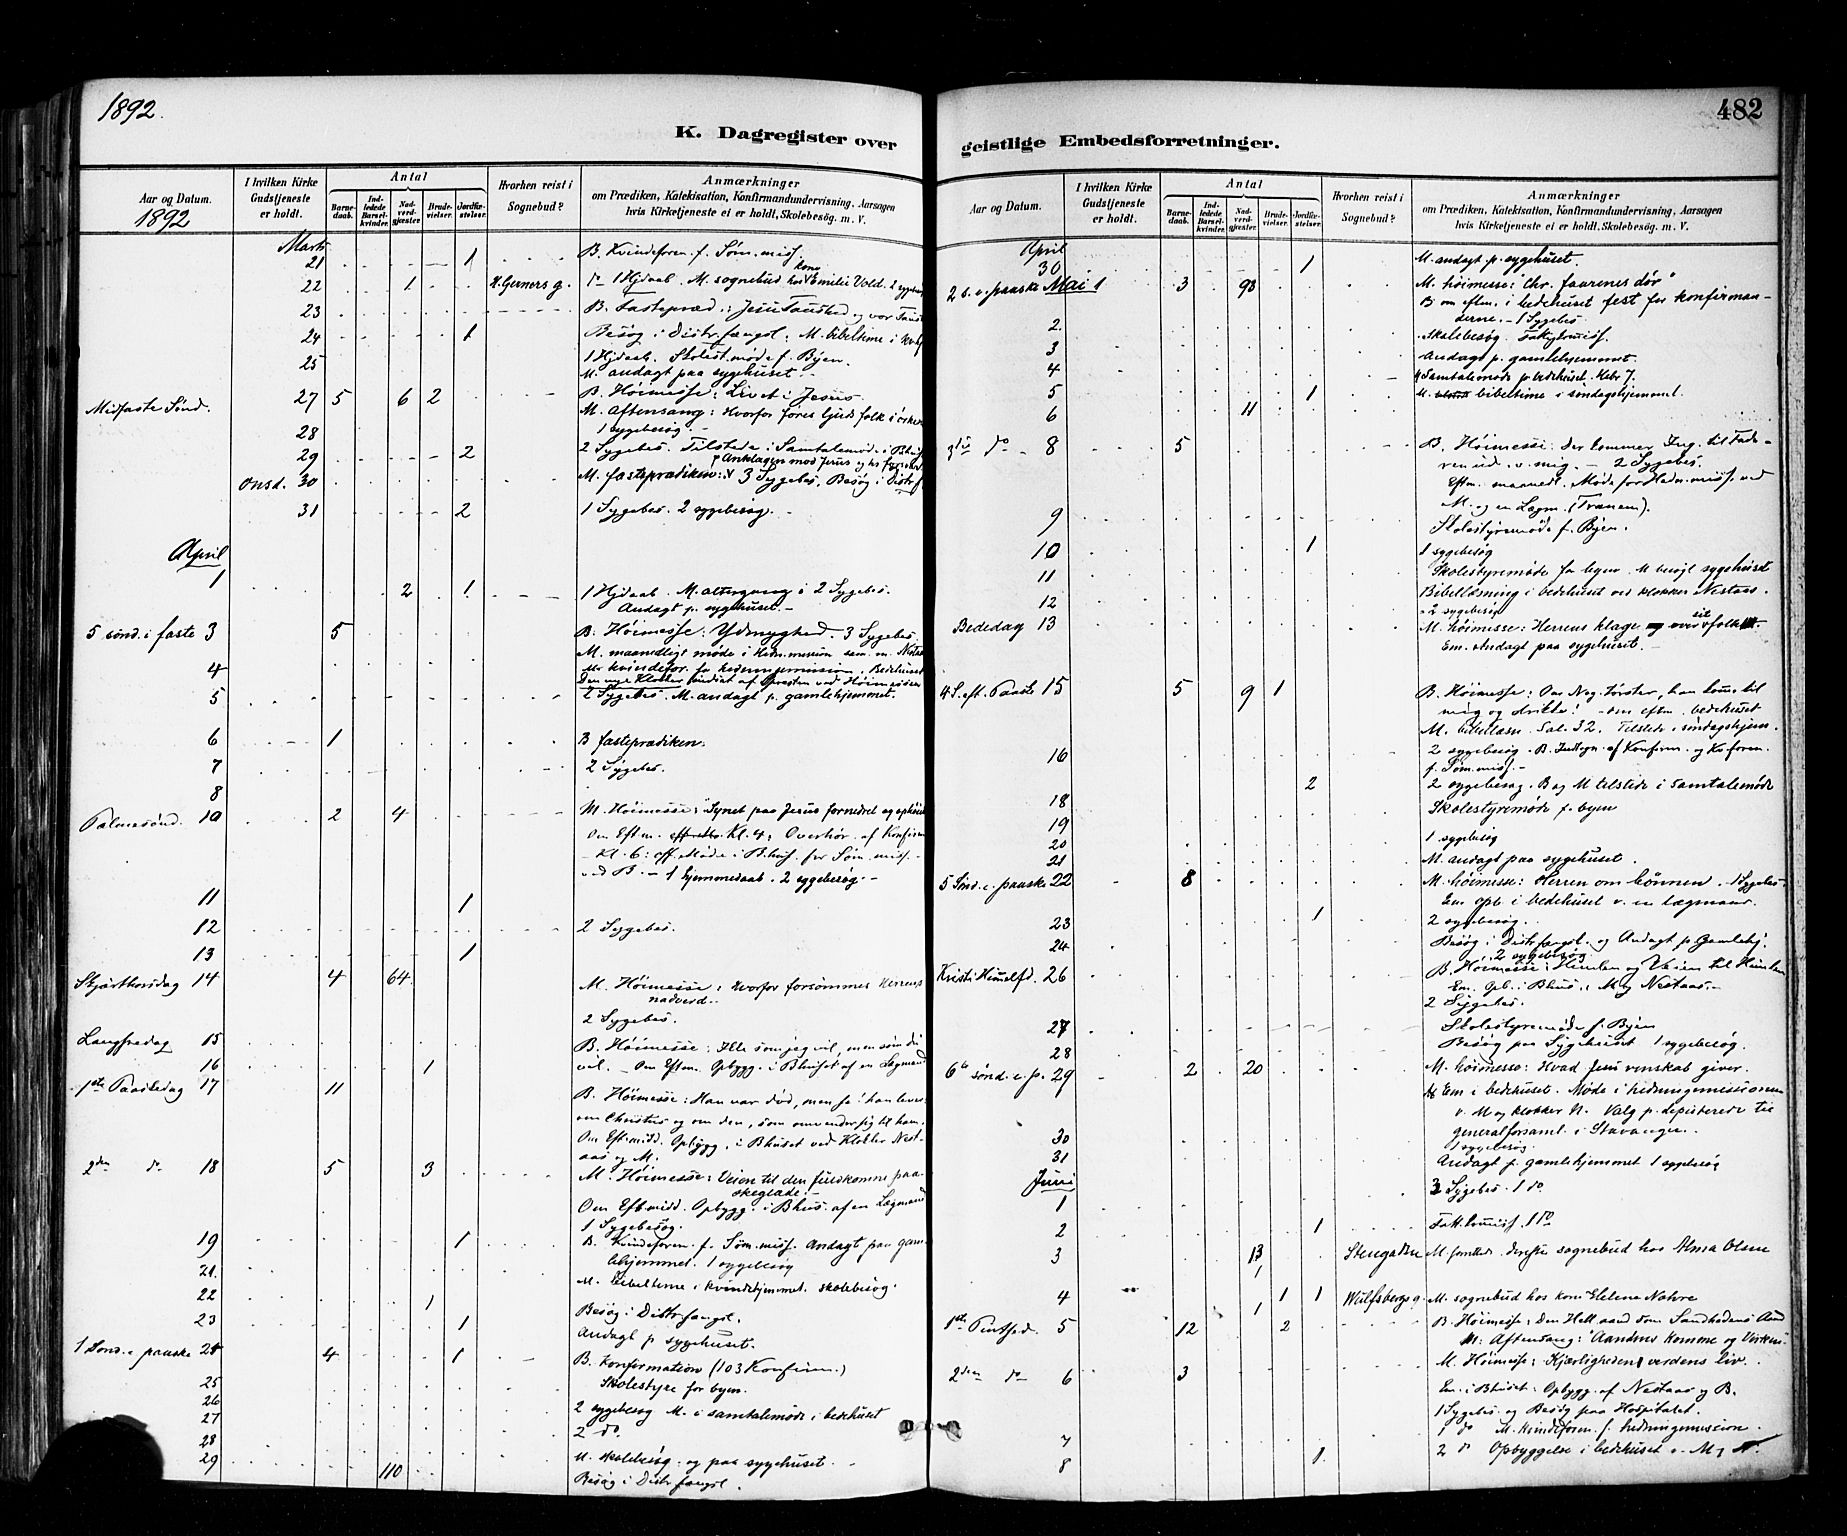 1892.
K. Dagregister over
Aar og Datum.
1892
I hvilken Kirke Gudstjeneste er holdt.
Antal
Barnedaab.
Indledede Barselkvinder.
Nadverdgjæster.
Brudevielser.
Jordfæstelser.
Hvorhen reist i Sognebud?
Anmærkninger
om Prædiken, Katekisation, Konfirmandundervisning, Aarsagen
hvis Kirketjeneste ei er holdt, Skolebesøg. m. V.
Marts
21 1 B. Kvindeforen. f. Søm. miss.
22 1 1 Hjdaab. M. sognebud hos kone Emilie Vold. 2 sygebes.
23 B. Fastepræd.: Jesu Taushed og vor Taush
24 1 Besøg i Distr. fængsl. M. bibeltime i
25 1 Hjdaab. Skolest. møde f. Byen.
M. andagt paa sygehuset. -
Midfaste Sønd. 27 5 6 2 B. Høimesse: Livet i Jesus.
M. Aftensang: Hvorfor føres Guds folk i ørken
28 1 sygebesøg. -
29 2 2 Sygebes. Tilstede i Samtalemøde i Bhus
Onsd. 30 M. fasteprædiken: Anklagen mod Jesus 3 Sygebes. Besøg i Distr.f
31 2 1 Sygebes. 2 sygebesøg.
April
1 2 1 1 Hjdaab. M. altergang i 2 Sygebes.
Andagt p. sygehuset. -
5 sønd. i faste 3 5 B. Høimesse: Ydmyghed. 3 Sygebes.
M. maanedligt møde i Hedn. mission sam. m. Nestaas
4
5 2 Sygebes. M. andagt p. gamlehjemmet.
6 1 B fasteprædiken.
7 2 Sygebes.
8
Palmesønd. 10 2 4 M. Høimesse: Synet paa Jesus fornedret og ophøiet
Om Eftm. Kl. 4: Overhør. af Konfirm
- Kl. 6: off. Møde i Bhus. for Søm. miss.
ved B. - 1 hjemmedaab. 2 sygebesøg. -
11 1
12 2 Sygebes.
13 1
Skjærthorsdag 14 4 64 M. Høimesse: Hvorfor forsømmes Herrens
nadverd.
2 Sygebes.
Langfredag 15 B. Høimesse: Ikke som jeg vil, men som du
16 1 vil. - Om Eftm. Opbygg. i Bhuset af en Lægmand
1ste Paaskedag 17 11 B. Høimesse: Han var død, men se! han lever.
om Christus og om den, som omvender sig til ham.
Om Eft.midd. Opbygg. i Bhuset ved Klokker Nest-
aas og M.
2den do 18 5 3 M. Høimesse: Veien til den fuldkomne paa-
skeglæde. -
Om Eftmidd. Opbygg. i Bhus. af en Lægmand
1 Sygebesøg.
19 1 B. Kvindeforen. f. Søm. miss. Andagt paa gam-
lehjemmet. 1 sygebesøg
21. M. bibeltime i kvindehjemmet. skolebesøg.
22 1
23 1 Besøg i Distr. fængsl.
Andagt p sygehuset.
1 Sønd. e. paaske 24 4 1 B. Konfirmation (103 Konfirm.)
25 Skolestyre for byen.
26 2 sygebesøg M. i samtalemøde i bedehuset
27 2 do.
28 M. skolebesøg. og paa sygehuset.
29 110 Besøg i Distr. fængsl.
482
geistlige Embedsforretninger.
Aar og Datum.
I hvilken Kirke Gudstjeneste er holdt.
Antal
Barnedaab.
Indledede Barselkvinder.
Nadverdgjæster.
Brudevielser.
Jordfæstelser.
Hvorhen reist i Sognebud?
Anmærkninger
om Prædiken, Katekisation, Konfirmandundervisning, Aarsagen
hvis Kirketjeneste ei er holdt, Skolebesøg. m. V.
April
30 1 M. andagt p. sygehuset.
2 s. e. paaske Mai 1 3 98 M. høimesse: Chr. faarenes dør"
B om eftm. i bedehuset fest for konfirman-
derne. - 1 Sygebes.
2. Skolebesøg.
3 Andagt p. gamlehjemmet.
4 Samtalemøde p. bedehuset. Hebr 7.
5 1 M. bibeltime i søndagshjemmet.
6 11
3die do - 8 5 B. Høimesse: Der kommer Ing. til Fade-
ren uden v. mig. - 2 Sygebes.
Eftm. maanedl. Møde for Hedn. miss. ved
M. og en Lægm. (Tranem).
9 Skolestyremøde f. Byen.
10 1 1 sygebesøg
11 Skolestyremøde for byen M. besøgt sygehuset
12 Bibellæsning i bedehuset ved klokker Nestaas.
2 sygebesøg
Bededag 13 M. høimesse: Herrens klage over sit folk.
Em. Andagt paa sygehuset. -
4 S. eft. Paaske 15 5 9 1 B. Høimesse: Om Nog. tørster, han komme til
mig og drikke! - om eftm. bedehuset
M. bibellæsn. Sal. 32. Tilstede i søndagshjem.
16 2 sygebesøg. B. Indtegn. af Konfirm. og Kv.foren.
f. Søm. miss. -
2 2 sygebesøg. B og M tilstede i Samtalemøde
18 Skolestyremøde f. byen
19
20 1 sygebesøg
21 M. andagt paa sygehuset.
5 Sønd. e. paaske 22 8 M. høimesse: Herren om bønnen. 1 Sygebes.
Em. opb. i bedehuset v. en lægmand.
23 1 2 sygebesøg.
24 Besøg i Distr. fængsl. og Andagt p. Gamlehj.
2 sygebesøg
Kristi Himelfd. 26 B. Høimesse: Himlen og Veien til Himlen
Em. Opb. i Bhus.: M og Nestaas. -
2 Sygebes.
27 Skolestyremøde f. Byen
28 Besøg paa Sygehuset 1 sygebesøg.
6te sønd. e. p. 29 2 20 M. høimesse: Hvad Jesu venskab giver.
Em i bedehuset. Møde i hedningemissionen
v. M og klokker N. Valg p. depisterede til
generalforsaml. i Stavanger.
30 1 sygebesøg
31 Andagt p. gamlehjemmet 1 sygebesøg
Juni
1 2 Sygebes. 1 do
2 1
3 13 1 Stengaden M. sognebud hos Alma Olsen
4 1 1 1 Wulfsbergsg. M. sognebud hos kone Helene Nohre
1ste Pintsed. 5 12 2 B. Høimesse: Den Hell. aand som Sandhedens Aand
M. Aftensang: "Aandens komme og Virken"
2den do 6 3 M. Høimesse: Kjærligheden verdens liv.
Em. i Bhuset: Opbygg. af Nestaas og B.
1 Sygebes. og Besøg paa Hospitalet.
7 1 do M. Kvindeforen. f. hedningemission.
8 1 2 do Opbyggelse i bedehuset v. M og N.